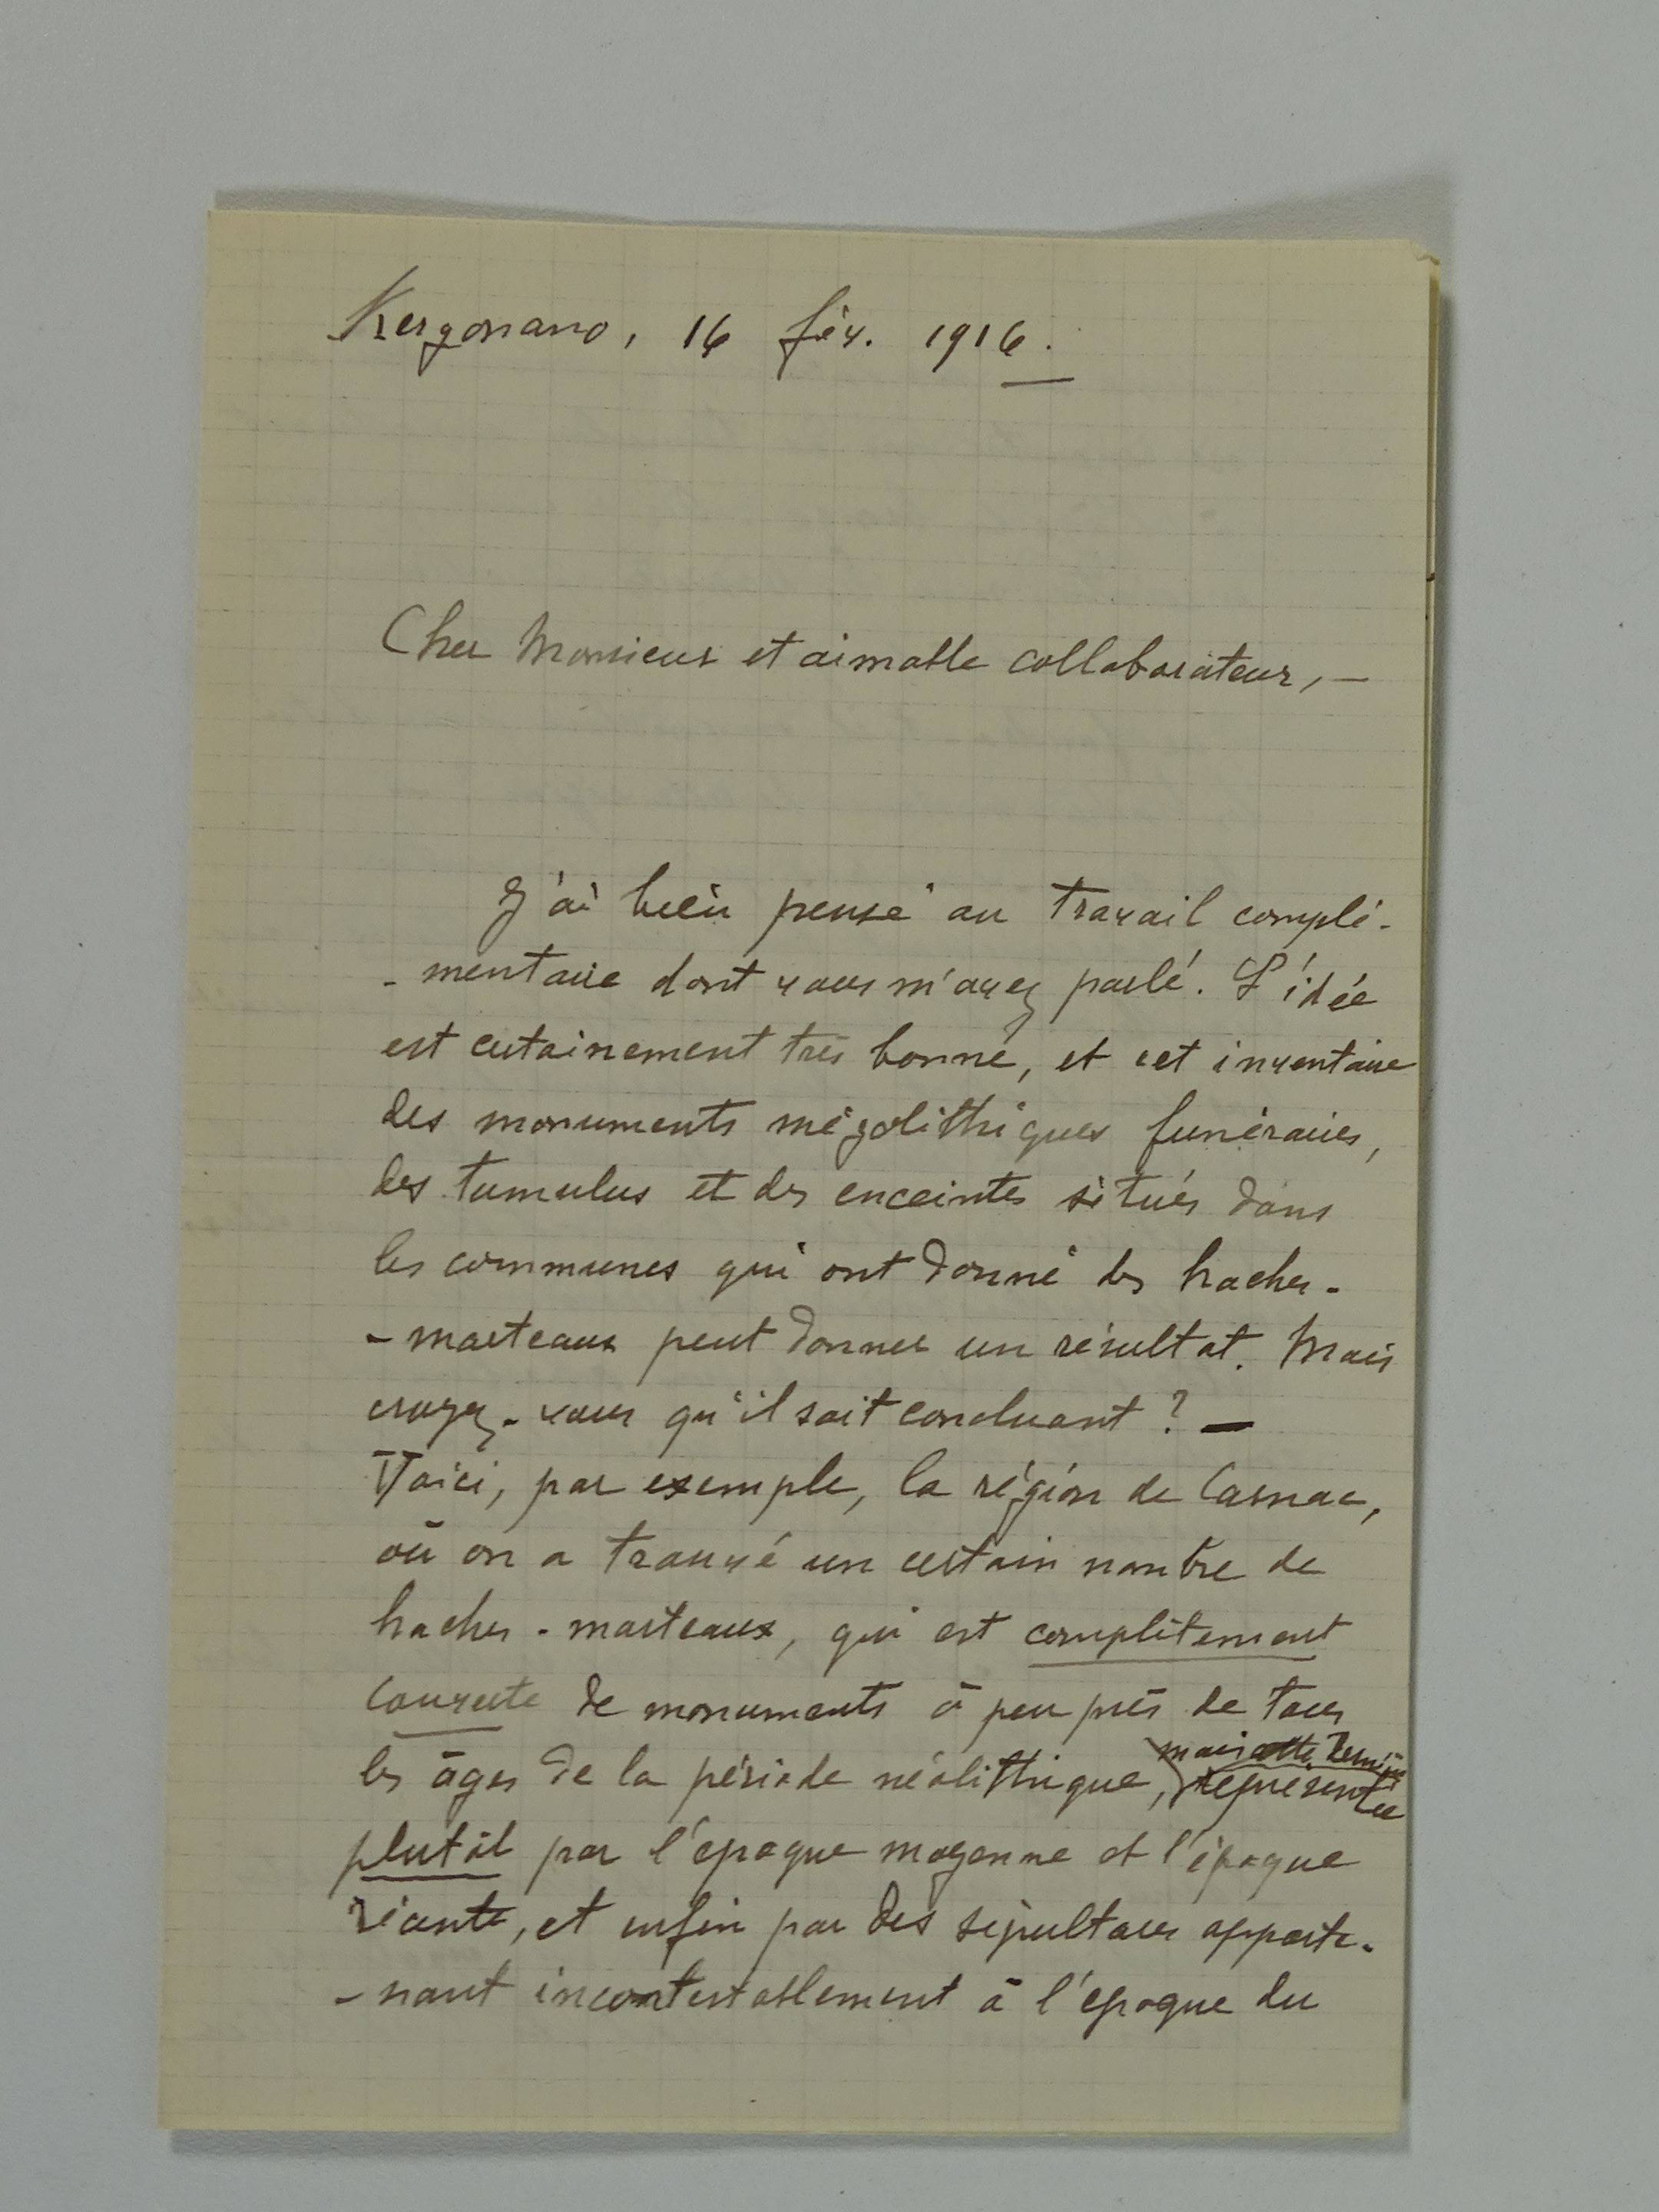 Kergonano, 16 fév. 1916.
Cher Monsieur et aimable collaborateur, —
J'ai bien pensé au travail complé-
- mentaire dont vous m'avez parlé. L'idée
est certainement très bonne, et cet inventaire
des monuments mégolithiques funéraires,
des tumulus et des enceintes situés dans
les communes qui ont donné des haches-
- marteaux peut donner un résultat. Mais
croyez-vous qu'il soit concluant ? —
Voici, par exemple, la région de Carnac,
où on a trouvé un certain nombre de
haches-marteaux, qui est complètement
couverte de monuments à peu près de tous
mais cette
les âges de la période néolithique, représentée
plutôt par l'époque moyenne et l'époque
récente, et enfin par des sépultures apparte-
- nant incontestablement à l'époque du